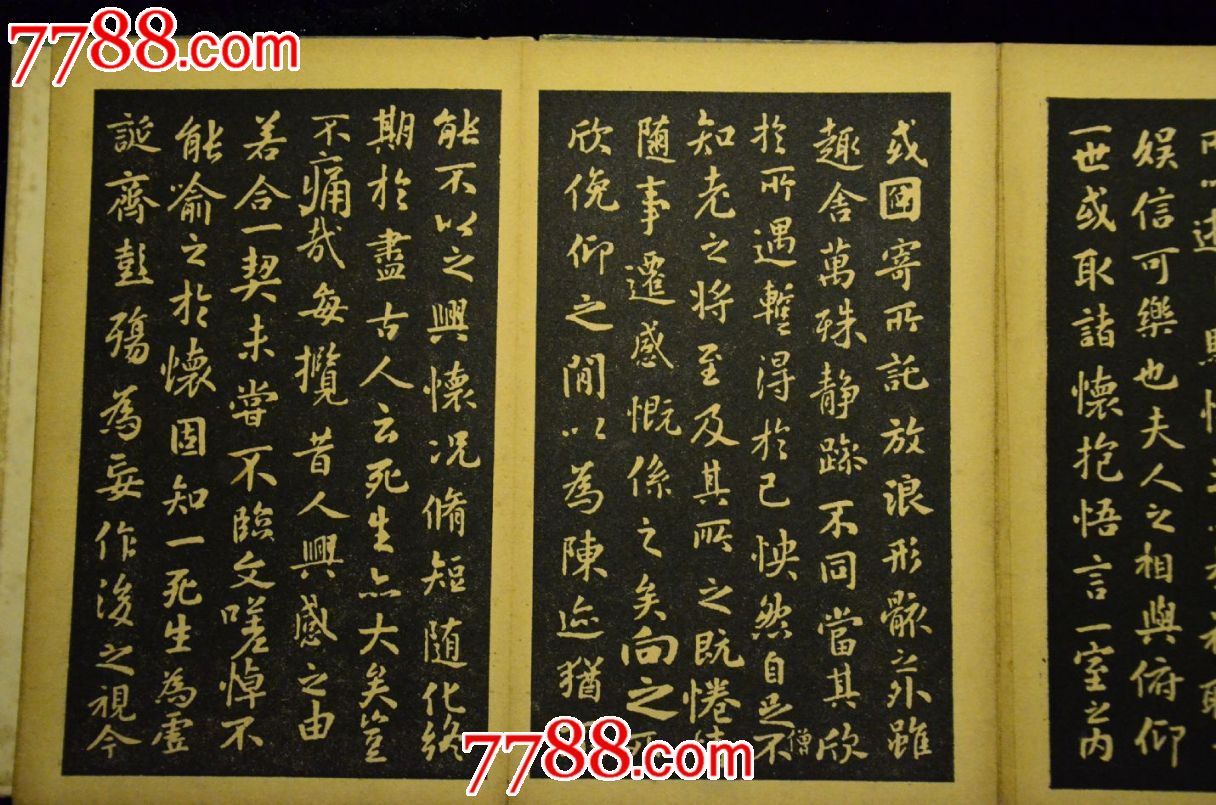 7788.com
娛信可樂也夫人之相與俯仰
一世或取諸懷抱悟言一室之內
或因寄所託放浪形骸之外雖
趣舍萬殊静躁不同當其欣
於所遇蹔得於己怏然自足不
僧
知老之將至及其所之既惓情
隨事遷感慨係之矣向之所
欣俛仰之閒以為陳迹猶不
能不以之興懷況脩短隨化終
期於盡古人云死生亦大矣豈
不痛哉每攬昔人興感之由
若合一契未嘗不臨文嗟悼不
能喻之於懷固知一死生為虛
誕齊彭殤為妄作後之視今
7788.com